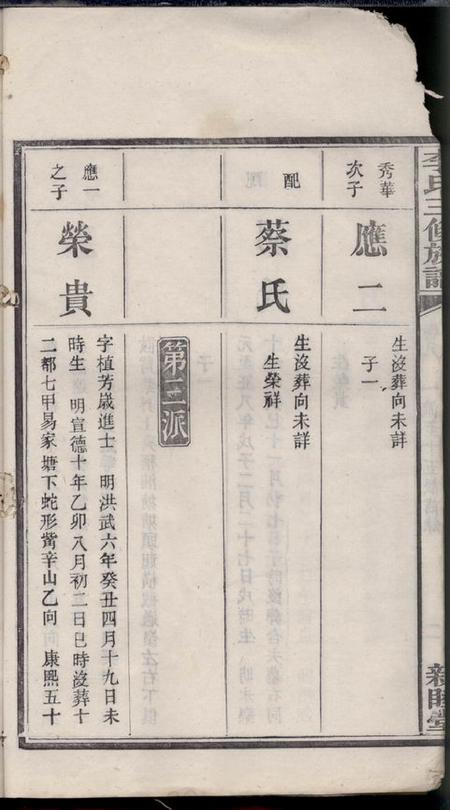 李氏三修族譜
親睦堂
秀華次子
應二
生沒葬向未詳
子一
配
蔡氏
生沒葬向未詳
生榮祥
第三派
應一之子
榮貴
字植芳歲進士 明洪武六年癸丑四月十九日未
時生 明宣德十年乙卯八月初二日巳時沒葬十
二都七甲易家塘下蛇形觜辛山乙向 康熙五十